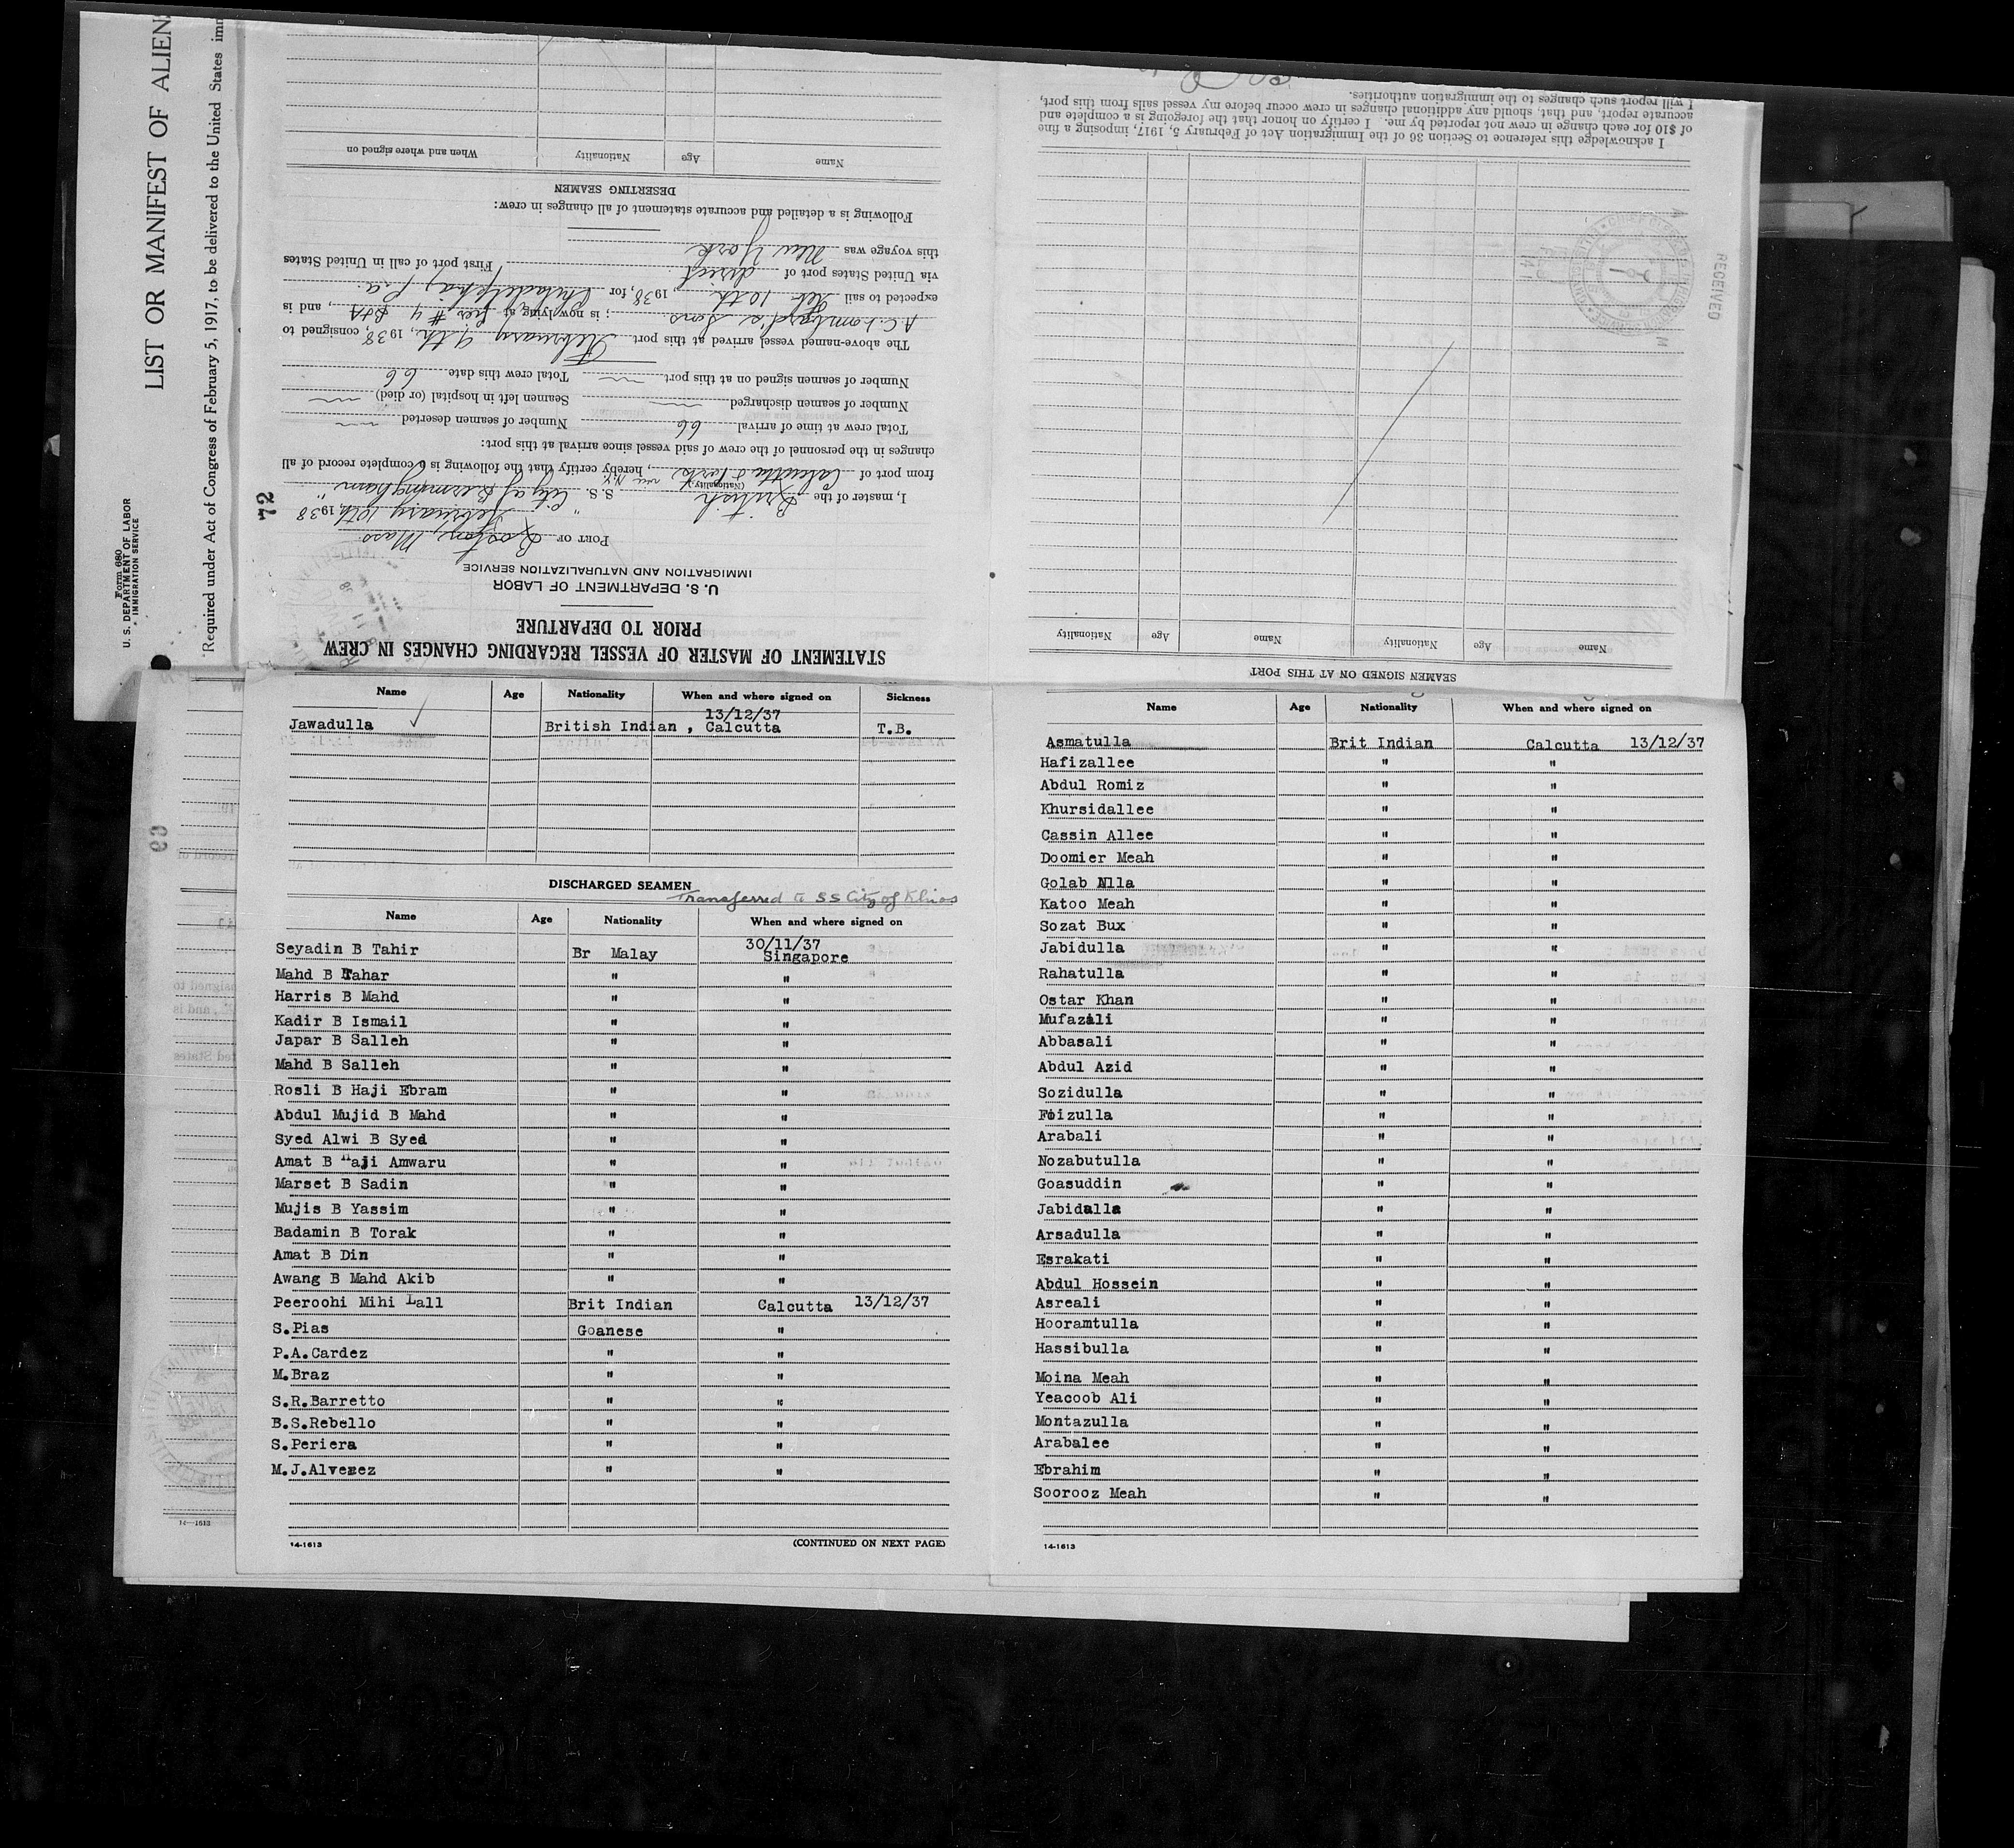 LIST OR MANIFEST OF ALIEN
Required under Act of Congress of February 5, 1917, to be delivered to the United States imm
Form 680
U. S. DEPARTMENT OF LABOR
IMMIGRATION SERVICE
72
STATEMENT OF MASTER OF VESSEL REGARDING CHANGES IN CREW
PRIOR TO DEPARTURE
U. S. DEPARTMENT OF LABOR
IMMIGRATION AND NATURALIZATION SERVICE
PORT OF Boston, Mass.
February 10th, 1938
I, master of the British S. S. "City of Birmingham"
(Nationality)
from port of Calcutta & Ports via N.Y., hereby certify that the following is a complete record of all
changes in the personnel of the crew of said vessel since arrival at this port:
Total crew at time of arrival 66 Number of seamen deserted
Number of seamen discharged Seamen left in hospital (or died)
Number of seamen signed on at this port Total crew this date 66
The above-named vessel arrived at this port February 9th, 1938, consigned to
A.C. Lombard's Sons; is now lying at Pier #4 B&A, and is
expected to sail Feb 10th, 1938, for Philadelphia, Pa.
via United States port of direct First port of call in United States
this voyage was New York
Following is a detailed and accurate statement of all changes in crew:
DESERTING SEAMEN
Name Age Nationality When and where signed on
SEAMEN SIGNED ON AT THIS PORT
Name Age Nationality Name Age Nationality
I acknowledge this reference to Section 36 of the Immigration Act of February 5, 1917, imposing a fine
of $10 for each change in crew not reported by me. I certify on honor that the foregoing is a complete and
accurate report, and that, should any additional changes in crew occur before my vessel sails from this port,
I will report such changes to the immigration authorities.
RECEIVED
Name Age Nationality When and where signed on Sickness
13/12/37
Jawadulla British Indian , Calcutta T.B.
DISCHARGED SEAMEN
Transferred to SS City of Khios
Name Age Nationality When and where signed on
30/11/37
Seyadin B Tahir Br Malay Singapore
Mahd B Tahar " "
Harris B Mahd " "
Kadir B Ismail " "
Japar B Salleh " "
Mahd B Salleh " "
Rosli B Haji Ebram " "
Abdul Mujid B Mahd " "
Syed Alwi B Syed " "
Amat B Haji Amwaru " "
Marset B Sadin " "
Mujis B Yassim " "
Badamin B Torak " "
Amat B Din " "
Awang B Mahd Akib " "
Peeroohi Mihi Lall Brit Indian Calcutta 13/12/37
S.Pias Goanese "
P.A.Cardez " "
M.Braz " "
S.R.Barretto " "
B.S.Rebello " "
S.Periera " "
M.J.Alverez " "
14-1613 (CONTINUED ON NEXT PAGE)
Name Age Nationality When and where signed on
Asmatulla Brit Indian Calcutta 13/12/37
Hafizallee " "
Abdul Romiz " "
Khursidallee " "
Cassin Allee " "
Doomier Meah " "
Golab Nlla " "
Katoo Meah " "
Sozat Bux " "
Jabidulla " "
Rahatulla " "
Ostar Khan " "
Mufazali " "
Abbasali " "
Abdul Azid " "
Sozidulla " "
Foizulla " "
Arabali " "
Nozabutulla " "
Goasuddin " "
Jabidalla " "
Arsadulla " "
Esrakati " "
Abdul Hossein " "
Asreali " "
Hooramtulla " "
Hassibulla " "
Moina Meah " "
Yeacoob Ali " "
Montazulla " "
Arabalee " "
Ebrahim " "
Soorooz Meah " "
14-1613
14-1613